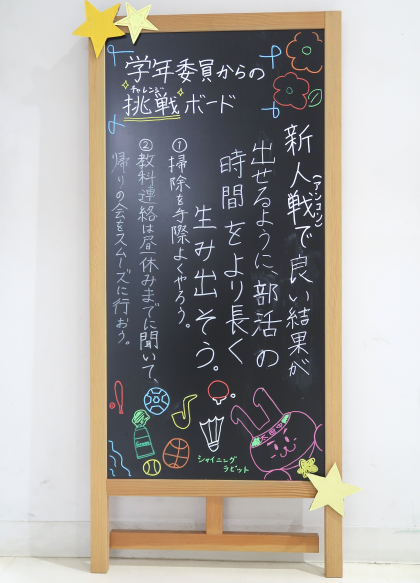 学年委員からの
チャレンジ
挑戦ボード
新人戦で良い結果が
(アンコン)
出せるように、部活の
時間をより長く
生み出そう。
①掃除を手際よくやろう。
②教科連絡は昼休みまでに聞いて、
帰りの会をスムーズに行おう。
シャイニング
ラビット